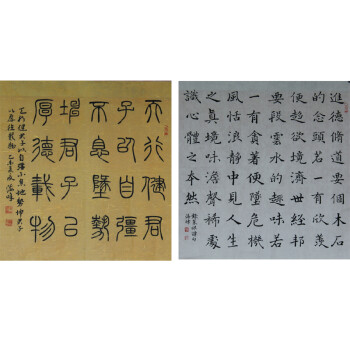 進德脩道要個木石
的念頭若一有欣羨
便趨欲境濟世經邦
要段雲水的趣味若
一有貪著便墮危機
風恬浪靜中見人生
之真境味澹聲稀處
識心體之本然
錄菜根譚句
天行健君
子㠯自彊
不息墬勢
坤君子㠯
厚德載物
天行健君子以自強不息地勢坤君子
以厚德載物